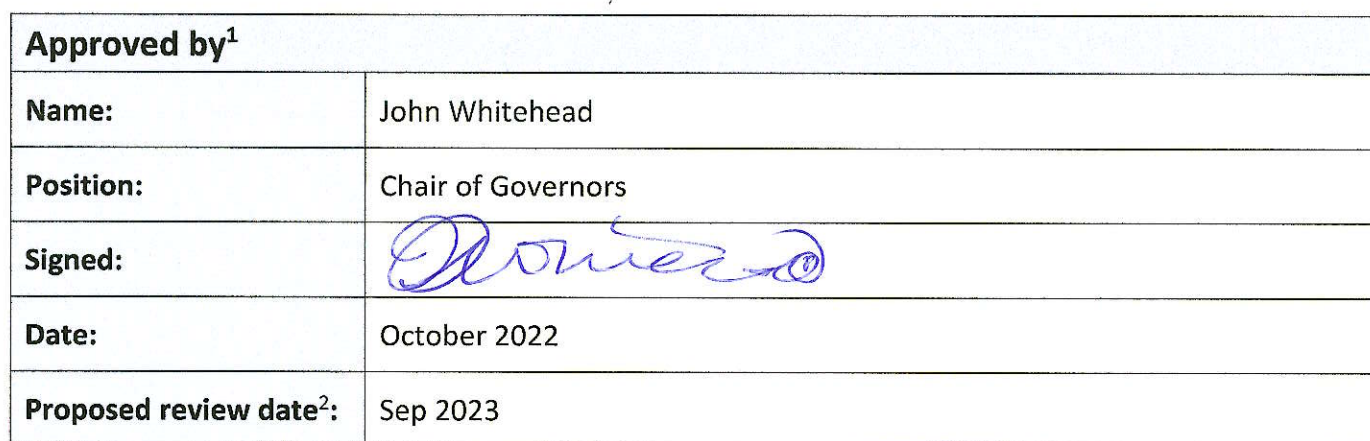 Approved by¹
Name: John Whitehead
Position: Chair of Governors
Signed:
Date: October 2022
Proposed review date²: Sep 2023